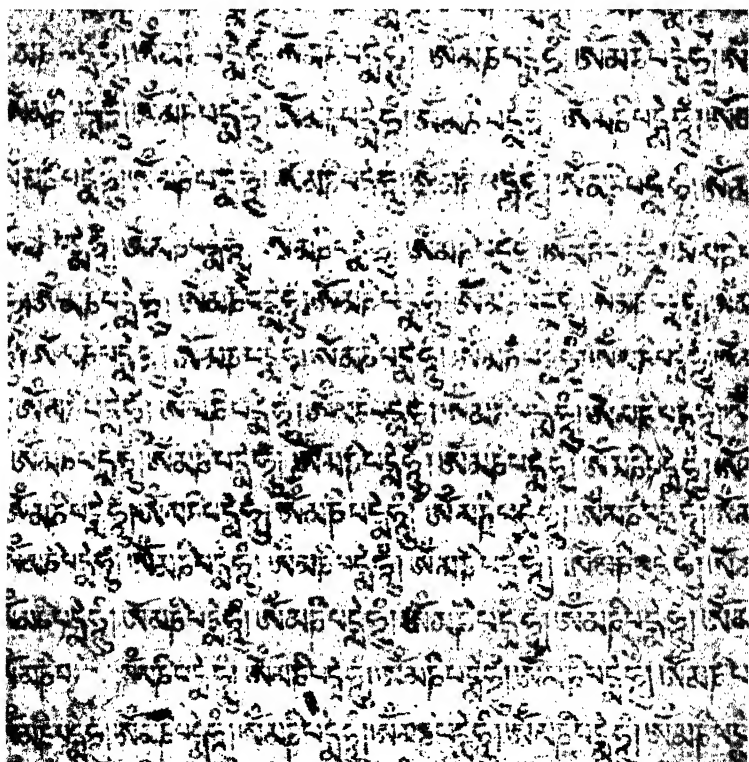 མ་ཎི་པ་དྨེ་ཧཱུྃ། ཨོཾ་མ་ཎི་པ་དྨེ་ཧཱུྃ། ཨོཾ་མ་ཎི་པ་དྨེ་ཧཱུྃ། ཨོཾ་མ་ཎི་པ་དྨེ་ཧཱུྃ། ཨོཾ་མ་ཎི་པ་དྨེ་ཧཱུྃ། ཨོཾ
མ་ཎི་པ་དྨེ་ཧཱུྃ། ཨོཾ་མ་ཎི་པ་དྨེ་ཧཱུྃ། ཨོཾ་མ་ཎི་པ་དྨེ་ཧཱུྃ། ཨོཾ་མ་ཎི་པ་དྨེ་ཧཱུྃ། ཨོཾ་མ་ཎི་པ་དྨེ་ཧཱུྃ། ཨོཾ
མ་ཎི་པ་དྨེ་ཧཱུྃ། ཨོཾ་མ་ཎི་པ་དྨེ་ཧཱུྃ། ཨོཾ་མ་ཎི་པ་དྨེ་ཧཱུྃ། ཨོཾ་མ་ཎི་པ་དྨེ་ཧཱུྃ། ཨོཾ་མ་ཎི་པ་དྨེ་ཧཱུྃ། ཨོཾ
མ་ཎི་པ་དྨེ་ཧཱུྃ། ཨོཾ་མ་ཎི་པ་དྨེ་ཧཱུྃ། ཨོཾ་མ་ཎི་པ་དྨེ་ཧཱུྃ། ཨོཾ་མ་ཎི་པ་དྨེ་ཧཱུྃ། ཨོཾ་མ་ཎི་པ་དྨེ་ཧཱུྃ། ཨོཾ་མ་ཎི
ཨོཾ་མ་ཎི་པ་དྨེ་ཧཱུྃ། ཨོཾ་མ་ཎི་པ་དྨེ་ཧཱུྃ། ཨོཾ་མ་ཎི་པ་དྨེ་ཧཱུྃ། ཨོཾ་མ་ཎི་པ་དྨེ་ཧཱུྃ། ཨོཾ་མ་ཎི་པ་དྨེ་ཧཱུྃ། ཨོཾ
ཨོཾ་མ་ཎི་པ་དྨེ་ཧཱུྃ། ཨོཾ་མ་ཎི་པ་དྨེ་ཧཱུྃ། ཨོཾ་མ་ཎི་པ་དྨེ་ཧཱུྃ། ཨོཾ་མ་ཎི་པ་དྨེ་ཧཱུྃ། ཨོཾ་མ་ཎི་པ་དྨེ་ཧཱུྃ། ཨོཾ
ཨོཾ་མ་ཎི་པ་དྨེ་ཧཱུྃ། ཨོཾ་མ་ཎི་པ་དྨེ་ཧཱུྃ། ཨོཾ་མ་ཎི་པ་དྨེ་ཧཱུྃ། ཨོཾ་མ་ཎི་པ་དྨེ་ཧཱུྃ། ཨོཾ་མ་ཎི་པ་དྨེ་ཧཱུྃ། ཨོཾ
ཨོཾ་མ་ཎི་པ་དྨེ་ཧཱུྃ། ཨོཾ་མ་ཎི་པ་དྨེ་ཧཱུྃ། ཨོཾ་མ་ཎི་པ་དྨེ་ཧཱུྃ། ཨོཾ་མ་ཎི་པ་དྨེ་ཧཱུྃ། ཨོཾ་མ་ཎི་པ་དྨེ་ཧཱུྃ། ཨོཾ
ཨོཾ་མ་ཎི་པ་དྨེ་ཧཱུྃ། ཨོཾ་མ་ཎི་པ་དྨེ་ཧཱུྃ། ཨོཾ་མ་ཎི་པ་དྨེ་ཧཱུྃ། ཨོཾ་མ་ཎི་པ་དྨེ་ཧཱུྃ། ཨོཾ་མ་ཎི་པ་དྨེ་ཧཱུྃ། ཨོཾ
མ་ཎི་པ་དྨེ་ཧཱུྃ། ཨོཾ་མ་ཎི་པ་དྨེ་ཧཱུྃ། ཨོཾ་མ་ཎི་པ་དྨེ་ཧཱུྃ། ཨོཾ་མ་ཎི་པ་དྨེ་ཧཱུྃ། ཨོཾ་མ་ཎི་པ་དྨེ་ཧཱུྃ། ཨོཾ
མ་ཎི་པ་དྨེ་ཧཱུྃ། ཨོཾ་མ་ཎི་པ་དྨེ་ཧཱུྃ། ཨོཾ་མ་ཎི་པ་དྨེ་ཧཱུྃ། ཨོཾ་མ་ཎི་པ་དྨེ་ཧཱུྃ། ཨོཾ་མ་ཎི་པ་དྨེ་ཧཱུྃ། ཨོཾ
མ་ཎི་པ ཨོཾ་མ་ཎི་པ་དྨེ་ཧཱུྃ། ཨོཾ་མ་ཎི་པ་དྨེ་ཧཱུྃ། ཨོཾ་མ་ཎི་པ་དྨེ་ཧཱུྃ། ཨོཾ་མ་ཎི་པ་དྨེ་ཧཱུྃ། ཨོཾ་མ་ཎི
མ་ཎི་པ་དྨེ་ཧཱུྃ། ཨོཾ་མ་ཎི་པ་དྨེ་ཧཱུྃ། ཨོཾ་མ་ཎི་པ་དྨེ་ཧཱུྃ། ཨོཾ་མ་ཎི་པ་དྨེ་ཧཱུྃ། ཨོཾ་མ་ཎི་པ་དྨེ་ཧཱུྃ། ཨོཾ་མ་ཎི